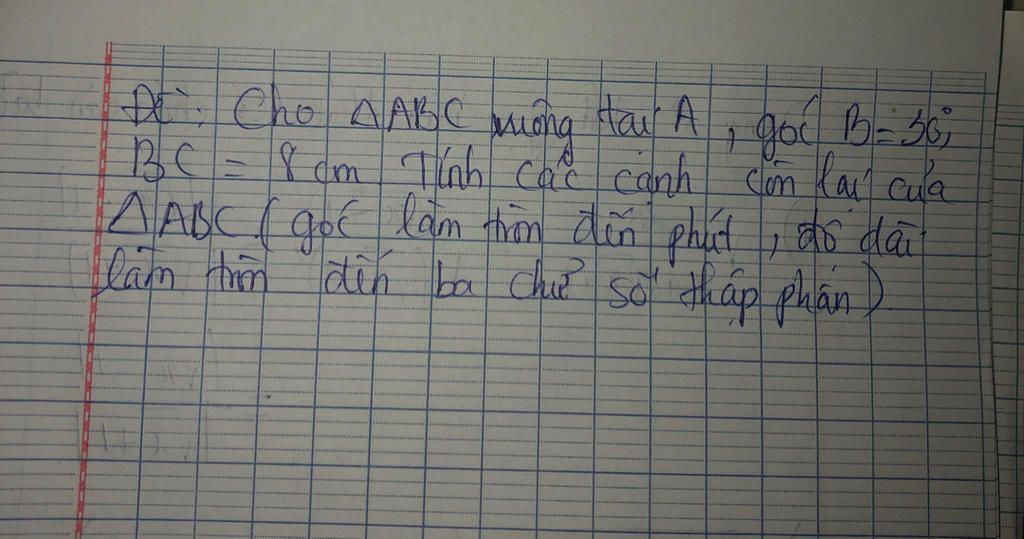 Đề: Cho ΔABC vuông tại A, góc B = 30°,
BC = 8 cm Tính các cạnh còn lại của
ΔABC (góc làm tròn đến phút, độ dài
làm tròn đến ba chữ số thập phân)